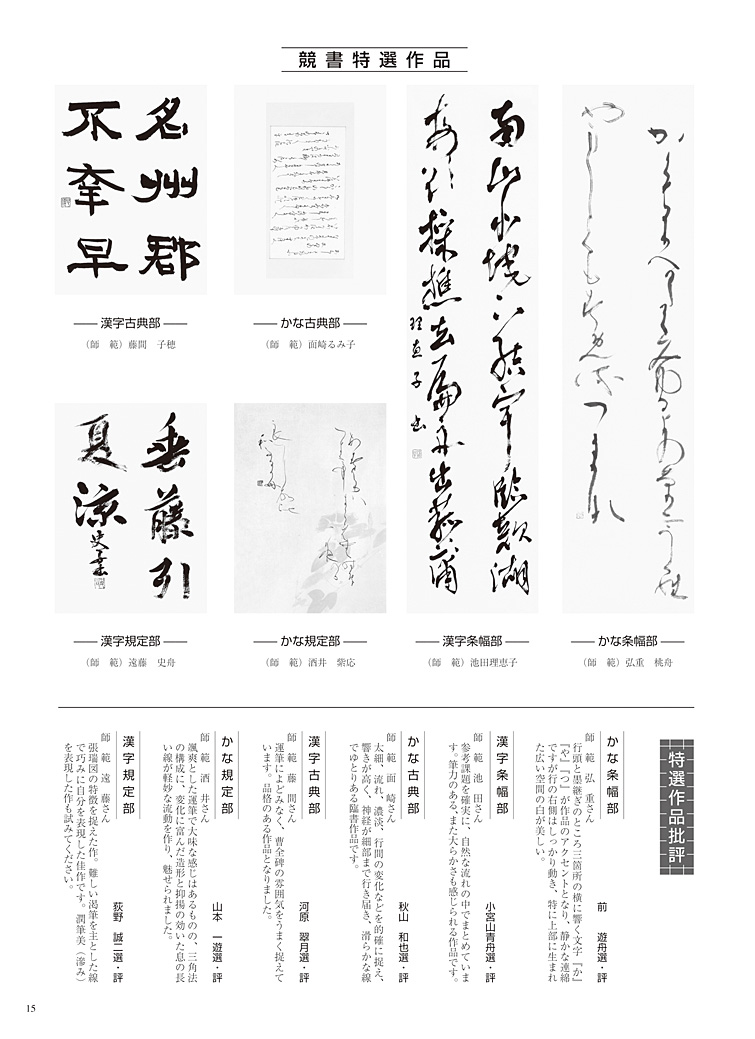 競書特選作品
名州郡
不牽早
漢字古典部
（師　範）藤間　子穂
かな古典部
（師　範）面崎るみ子
垂藤引
夏涼
漢字規定部
（師　範）遠藤　史舟
かな規定部
（師　範）酒井　紫応
漢字条幅部
（師　範）池田理恵子
かな条幅部
（師　範）弘重　桃舟
特選作品批評
かな条幅部
前　遊舟選・評
師　範　弘　重さん
行頭と墨継ぎのところ三箇所の横に響く文字『か』
『や』『つ』が作品のアクセントとなり、静かな連綿
ですが行の右側はしっかり動き、特に上部に生まれ
た広い空間の白が美しい。
漢字条幅部
小宮山青舟選・評
師　範　池　田さん
参考課題を確実に、自然な流れの中でまとめていま
す。筆力のある、また大らかさも感じられる作品です。
かな古典部
秋山　和也選・評
師　範　面　崎さん
太細、流れ、濃淡、行間の変化などを的確に捉え、
響きが高く、神経が細部まで行き届き、滑らかな線
でゆとりある臨書作品です。
漢字古典部
河原　翠月選・評
師　範　藤　間さん
運筆によどみなく、曹全碑の雰囲気をうまく捉えて
います。品格のある作品となりました。
かな規定部
山本　一遊選・評
師　範　酒　井さん
颯爽とした運筆で大味な感じはあるものの、三角法
の構成に、変化に富んだ造形と抑揚の効いた息の長
い線が軽妙な流動を作り、魅せられました。
漢字規定部
荻野　誠二選・評
師　範　遠　藤さん
張瑞図の特徴を捉えた作。難しい渇筆を主とした線
で巧みに自分を表現した佳作です。潤筆美（滲み）
を表現した作も試みてください。
15